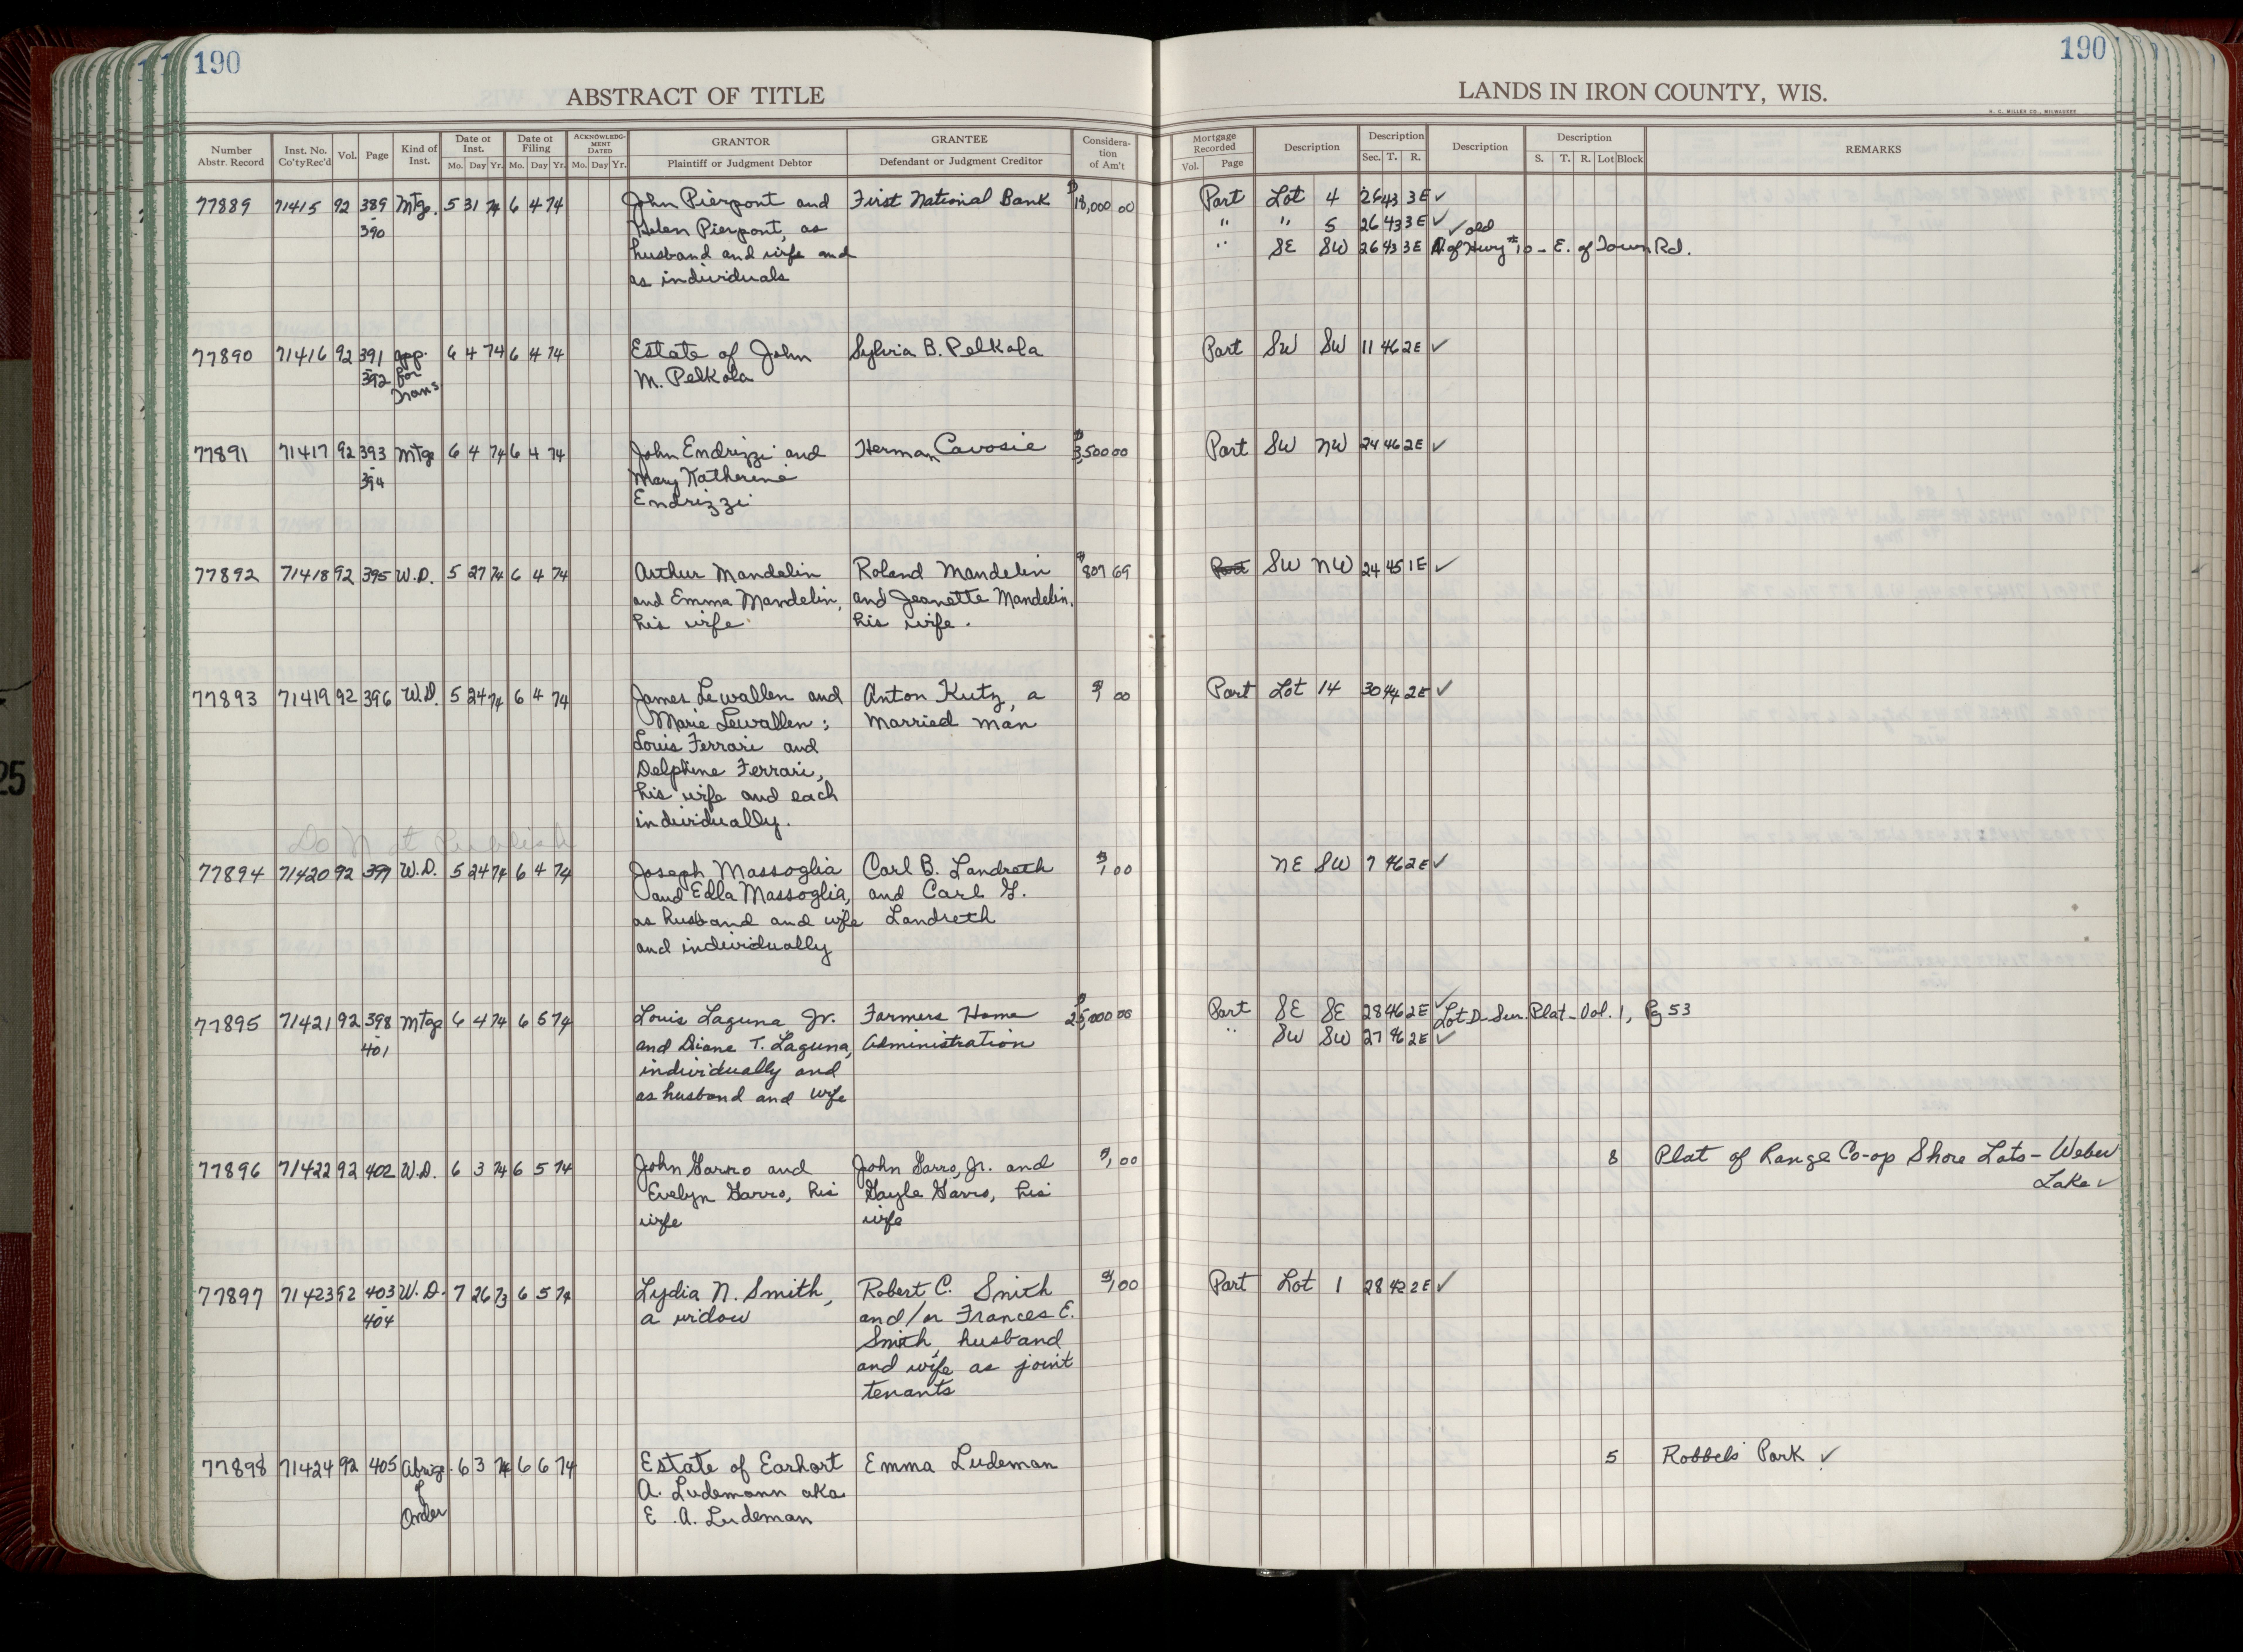 190
190
ABSTRACT OF TITLE
LANDS IN IRON COUNTY, WIS.
H. C. MILLER CO., MILWAUKEE
Number Abstr. Record Inst. No. Co'tyRec'd Vol. Page Kind of Inst. Date of Inst. Mo. Day Yr. Date of Filing Mo. Day Yr. ACKNOWLEDGMENT DATED Mo. Day Yr. GRANTOR Plaintiff or Judgment Debtor GRANTEE Defendant or Judgment Creditor Consideration of Am't
Mortgage Recorded Vol. Page Description Description Sec. T. R. Description Description S. T. R. Lot Block REMARKS
77889 71415 92 389 Mtg. 5 31 74 6 4 74 John Pierpont and First National Bank $18,000 00 Part Lot 4 26 43 3E ✓
- 390 Helen Pierpont, as " " 5 26 43 3E ✓ ✓ old
husband and wife and " SE SW 26 43 3E N. of Hwy #10 - E. of Town Rd.
as individuals
77890 71416 92 391 App. 6 4 74 6 4 74 Estate of John Sylvia B. Pelkola Part SW SW 11 46 2E ✓
- 392 for M. Pelkola
Trans
77891 71417 92 393 Mtge 6 4 74 6 4 74 John Endrizzi and Herman Cavosie $3,500 00 Part SW NW 24 46 2E ✓
- 394 Mary Katherine
Endrizzi
77892 71418 92 395 W.D. 5 27 74 6 4 74 Arthur Mandelin Roland Mandelin $807 69 Part SW NW 24 45 1E ✓
and Emma Mandelin, and Jeanette Mandelin,
his wife his wife.
77893 71419 92 396 W.D. 5 24 74 6 4 74 James Lewallen and Anton Kutz, a $1 00 Part Lot 14 30 44 2E ✓
Marie Lewallen; Married man
Louis Ferrari and
Delphine Ferrari,
his wife and each
individually.
Do Not Publish
77894 71420 92 397 W.D. 5 24 74 6 4 74 Joseph Massoglia Carl B. Landreth $1 00 NE SW 7 46 2E ✓
and Edla Massoglia, and Carl G.
as husband and wife Landreth
and individually
77895 71421 92 398 Mtge 6 4 74 6 5 74 Louis Laguna, Jr. Farmers Home $25,000 00 Part SE SE 28 46 2E ✓ Lot D - Sur. Plat - Vol. 1, Pg 53
- 401 and Diane T. Laguna, Administration " SW SW 27 46 2E ✓
individually and
as husband and wife
77896 71422 92 402 W.D. 6 3 74 6 5 74 John Garro and John Garro, Jr. and $1 00 8 Plat of Range Co-op Shore Lots - Weber
Evelyn Garro, his Gayle Garro, his Lake ✓
wife wife
77897 71423 92 403 W.D. 7 26 73 6 5 74 Lydia N. Smith, Robert C. Smith $1 00 Part Lot 1 28 42 2E ✓
- 404 a widow and/or Frances E.
Smith, husband
and wife as joint
tenants
77898 71424 92 405 Abrige 6 3 74 6 6 74 Estate of Earhart Emma Ludeman 5 Robbels Park ✓
of A. Ludemann aka
Order E. A. Ludeman
25